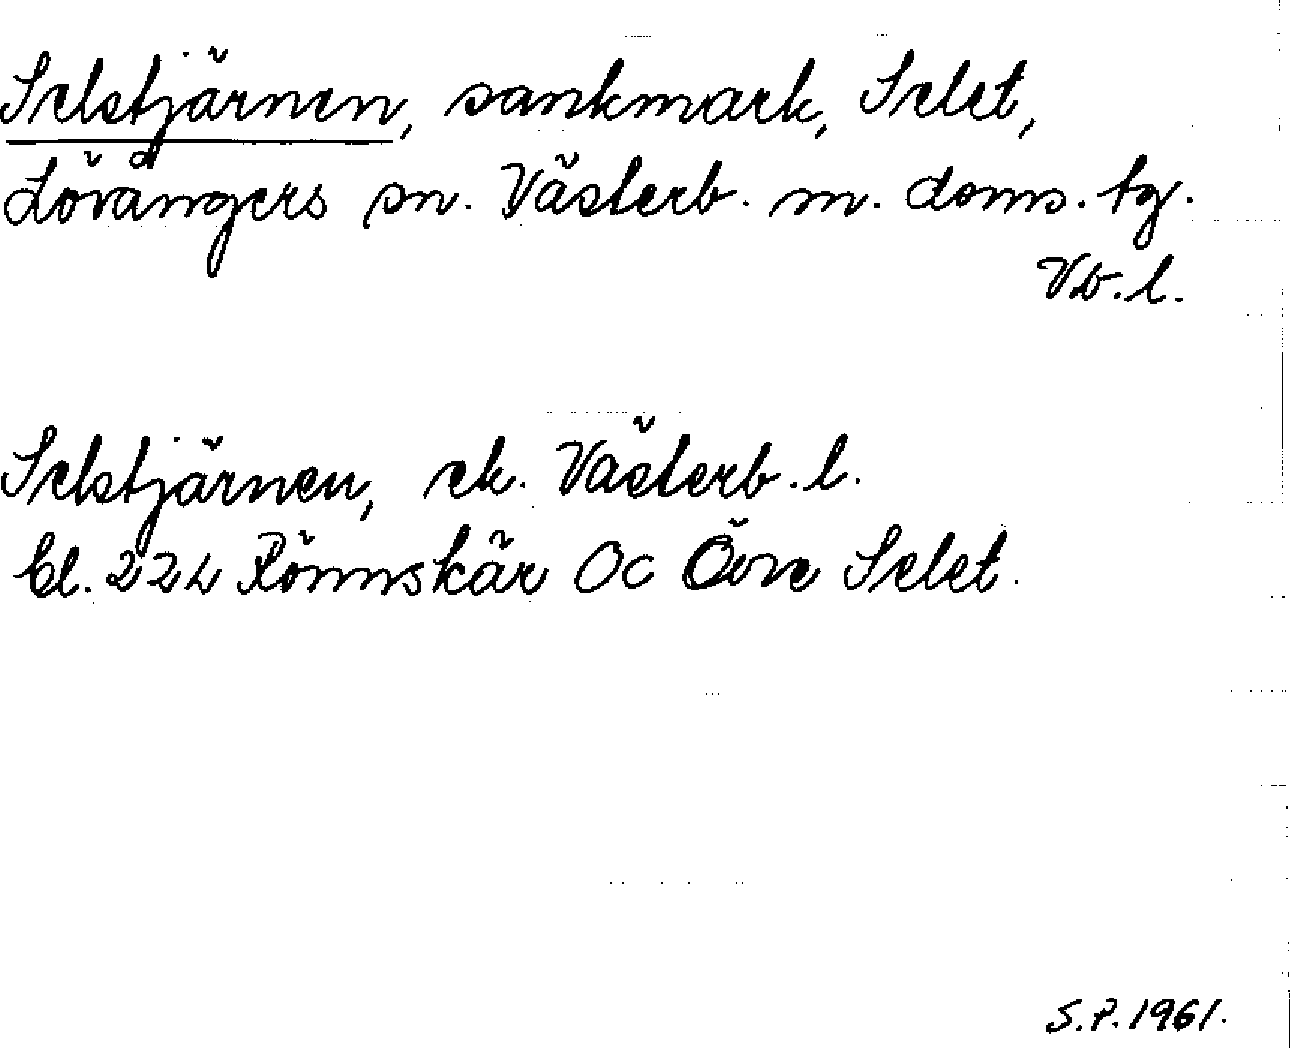 Selstjärnen, sankmark, Selet,
Lövångers sn. Västerb. m. doms. tg.
Vb. l.
Selstjärnen, ek. Västerb. l.
Bl. 22L Rönnskär Oc Övre Selet.
S.P. 1961.